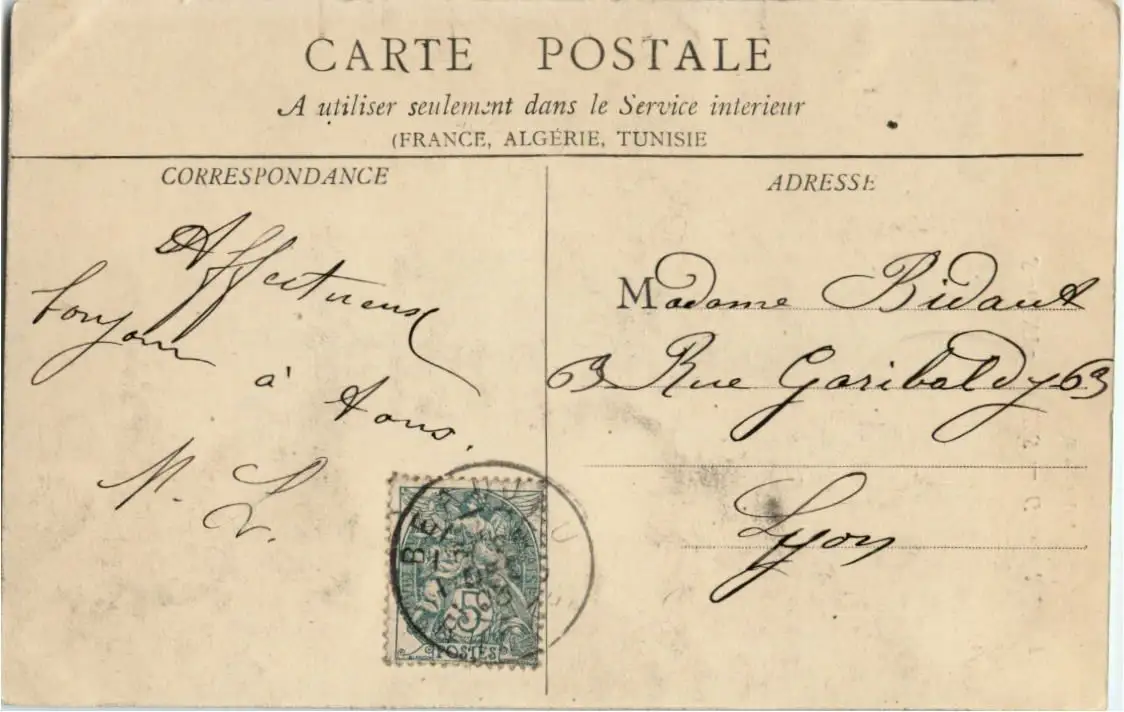 CARTE POSTALE
A utiliser seulement dans le Service interieur
(FRANCE, ALGÉRIE, TUNISIE
CORRESPONDANCE
Affectueux
bonjour
à
tous.
M. L.
ADRESSE
Madame Bidaut
63 Rue Garibaldy 63
Lyon
5
POSTES